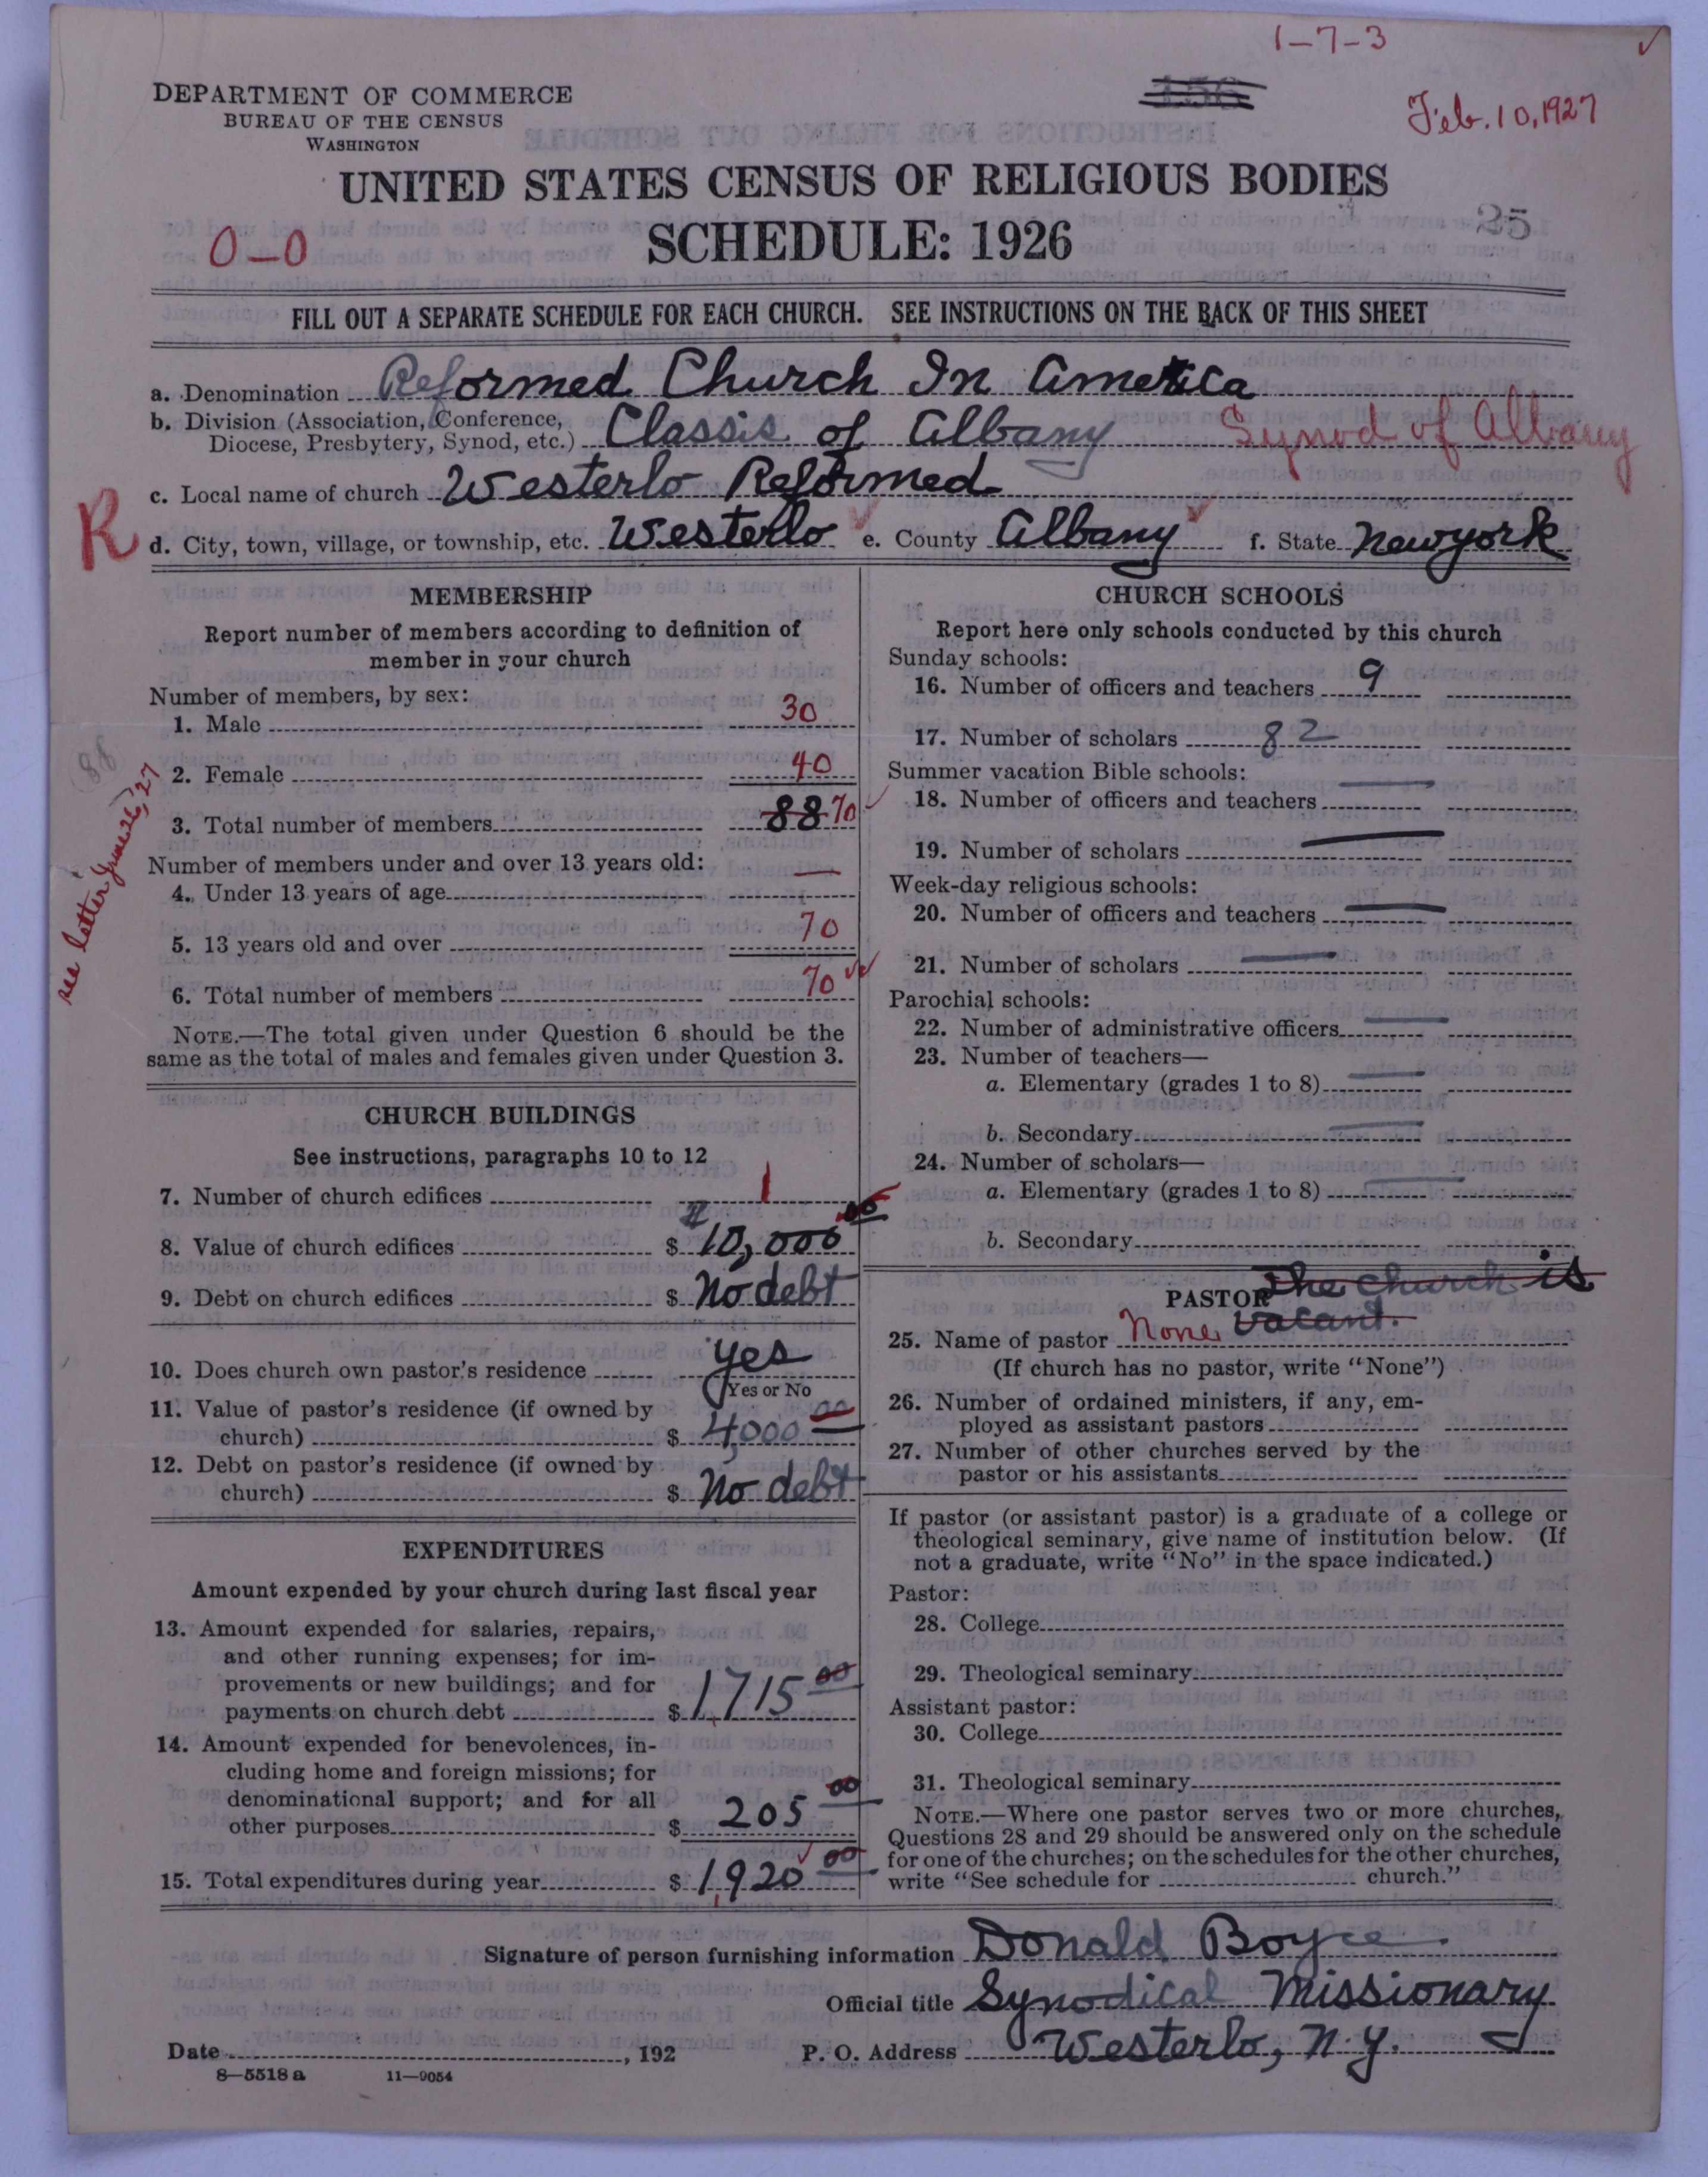 1-7-3
DEPARTMENT OF COMMERCE
BUREAU OF THE CENSUS
WASHINGTON
156
Feb. 10, 1927
UNITED STATES CENSUS OF RELIGIOUS BODIES
SCHEDULE: 1926
0-0
25
FILL OUT A SEPARATE SCHEDULE FOR EACH CHURCH. SEE INSTRUCTIONS ON THE BACK OF THIS SHEET
a. Denomination Reformed Church In America
b. Division (Association, Conference,
Diocese, Presbytery, Synod, etc.) Classis of Albany Synod of Albany
c. Local name of church Westerlo Reformed
R
d. City, town, village, or township, etc. Westerlo e. County Albany f. State New york
MEMBERSHIP
Report number of members according to definition of
member in your church
Number of members, by sex:
1. Male 30
2. Female 40
3. Total number of members 88 70
88
see letter June 26, 27
Number of members under and over 13 years old:
4. Under 13 years of age —
5. 13 years old and over 70
6. Total number of members 70
NOTE.—The total given under Question 6 should be the
same as the total of males and females given under Question 3.
CHURCH BUILDINGS
See instructions, paragraphs 10 to 12
7. Number of church edifices 1
8. Value of church edifices $ 10,000 00
9. Debt on church edifices $ No debt
10. Does church own pastor's residence yes
Yes or No
11. Value of pastor's residence (if owned by
church) $ 4,000 00
12. Debt on pastor's residence (if owned by
church) $ No debt
EXPENDITURES
Amount expended by your church during last fiscal year
13. Amount expended for salaries, repairs,
and other running expenses; for im-
provements or new buildings; and for
payments on church debt $ 1,715 00
14. Amount expended for benevolences, in-
cluding home and foreign missions; for
denominational support; and for all
other purposes $ 205 00
15. Total expenditures during year $ 1,920 00
CHURCH SCHOOLS
Report here only schools conducted by this church
Sunday schools:
16. Number of officers and teachers 9
17. Number of scholars 82
Summer vacation Bible schools:
18. Number of officers and teachers —
19. Number of scholars —
Week-day religious schools:
20. Number of officers and teachers —
21. Number of scholars —
Parochial schools:
22. Number of administrative officers —
23. Number of teachers—
a. Elementary (grades 1 to 8) —
b. Secondary —
24. Number of scholars—
a. Elementary (grades 1 to 8) —
b. Secondary
PASTOR The church is
25. Name of pastor None vacant.
(If church has no pastor, write "None")
26. Number of ordained ministers, if any, em-
ployed as assistant pastors
27. Number of other churches served by the
pastor or his assistants
If pastor (or assistant pastor) is a graduate of a college or
theological seminary, give name of institution below. (If
not a graduate, write "No" in the space indicated.)
Pastor:
28. College
29. Theological seminary
Assistant pastor:
30. College
31. Theological seminary
NOTE.—Where one pastor serves two or more churches,
Questions 28 and 29 should be answered only on the schedule
for one of the churches; on the schedules for the other churches,
write "See schedule for church."
Signature of person furnishing information Donald Boyce
Official title Synodical Missionary
Date , 192 P. O. Address Westerlo, N.Y.
8—5518 a 11—9054